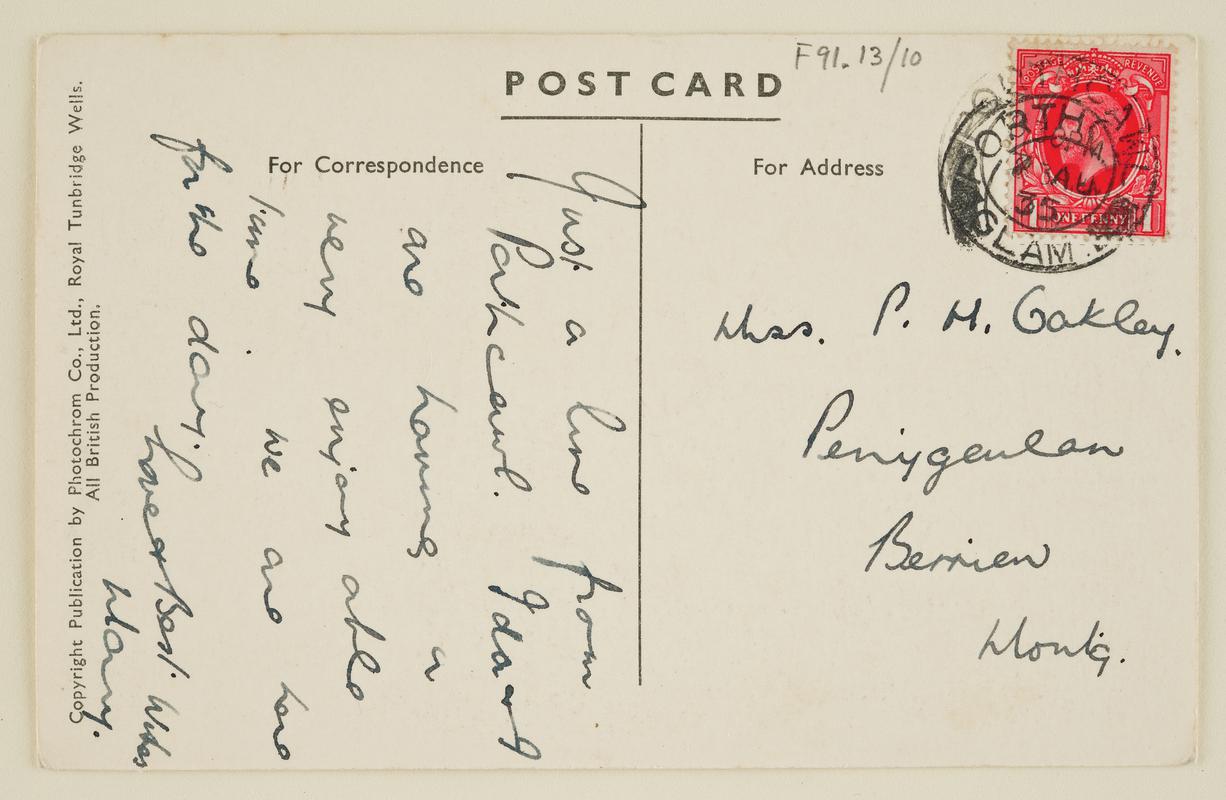 POST CARD
F91.13/10
For Correspondence
For Address
POSTAGE REVENUE
ONE PENNY
PORTHCAWL
35
GLAM
Just a line from
Porthcawl. Ida & I
are having a
very enjoyable
time. We are here
for the day.
Love & Best Wishes
Mary.
Miss. P. M. Oakley.
Penygeulan
Berriew
Montg.
Copyright Publication by Photochrom Co., Ltd., Royal Tunbridge Wells.
All British Production.